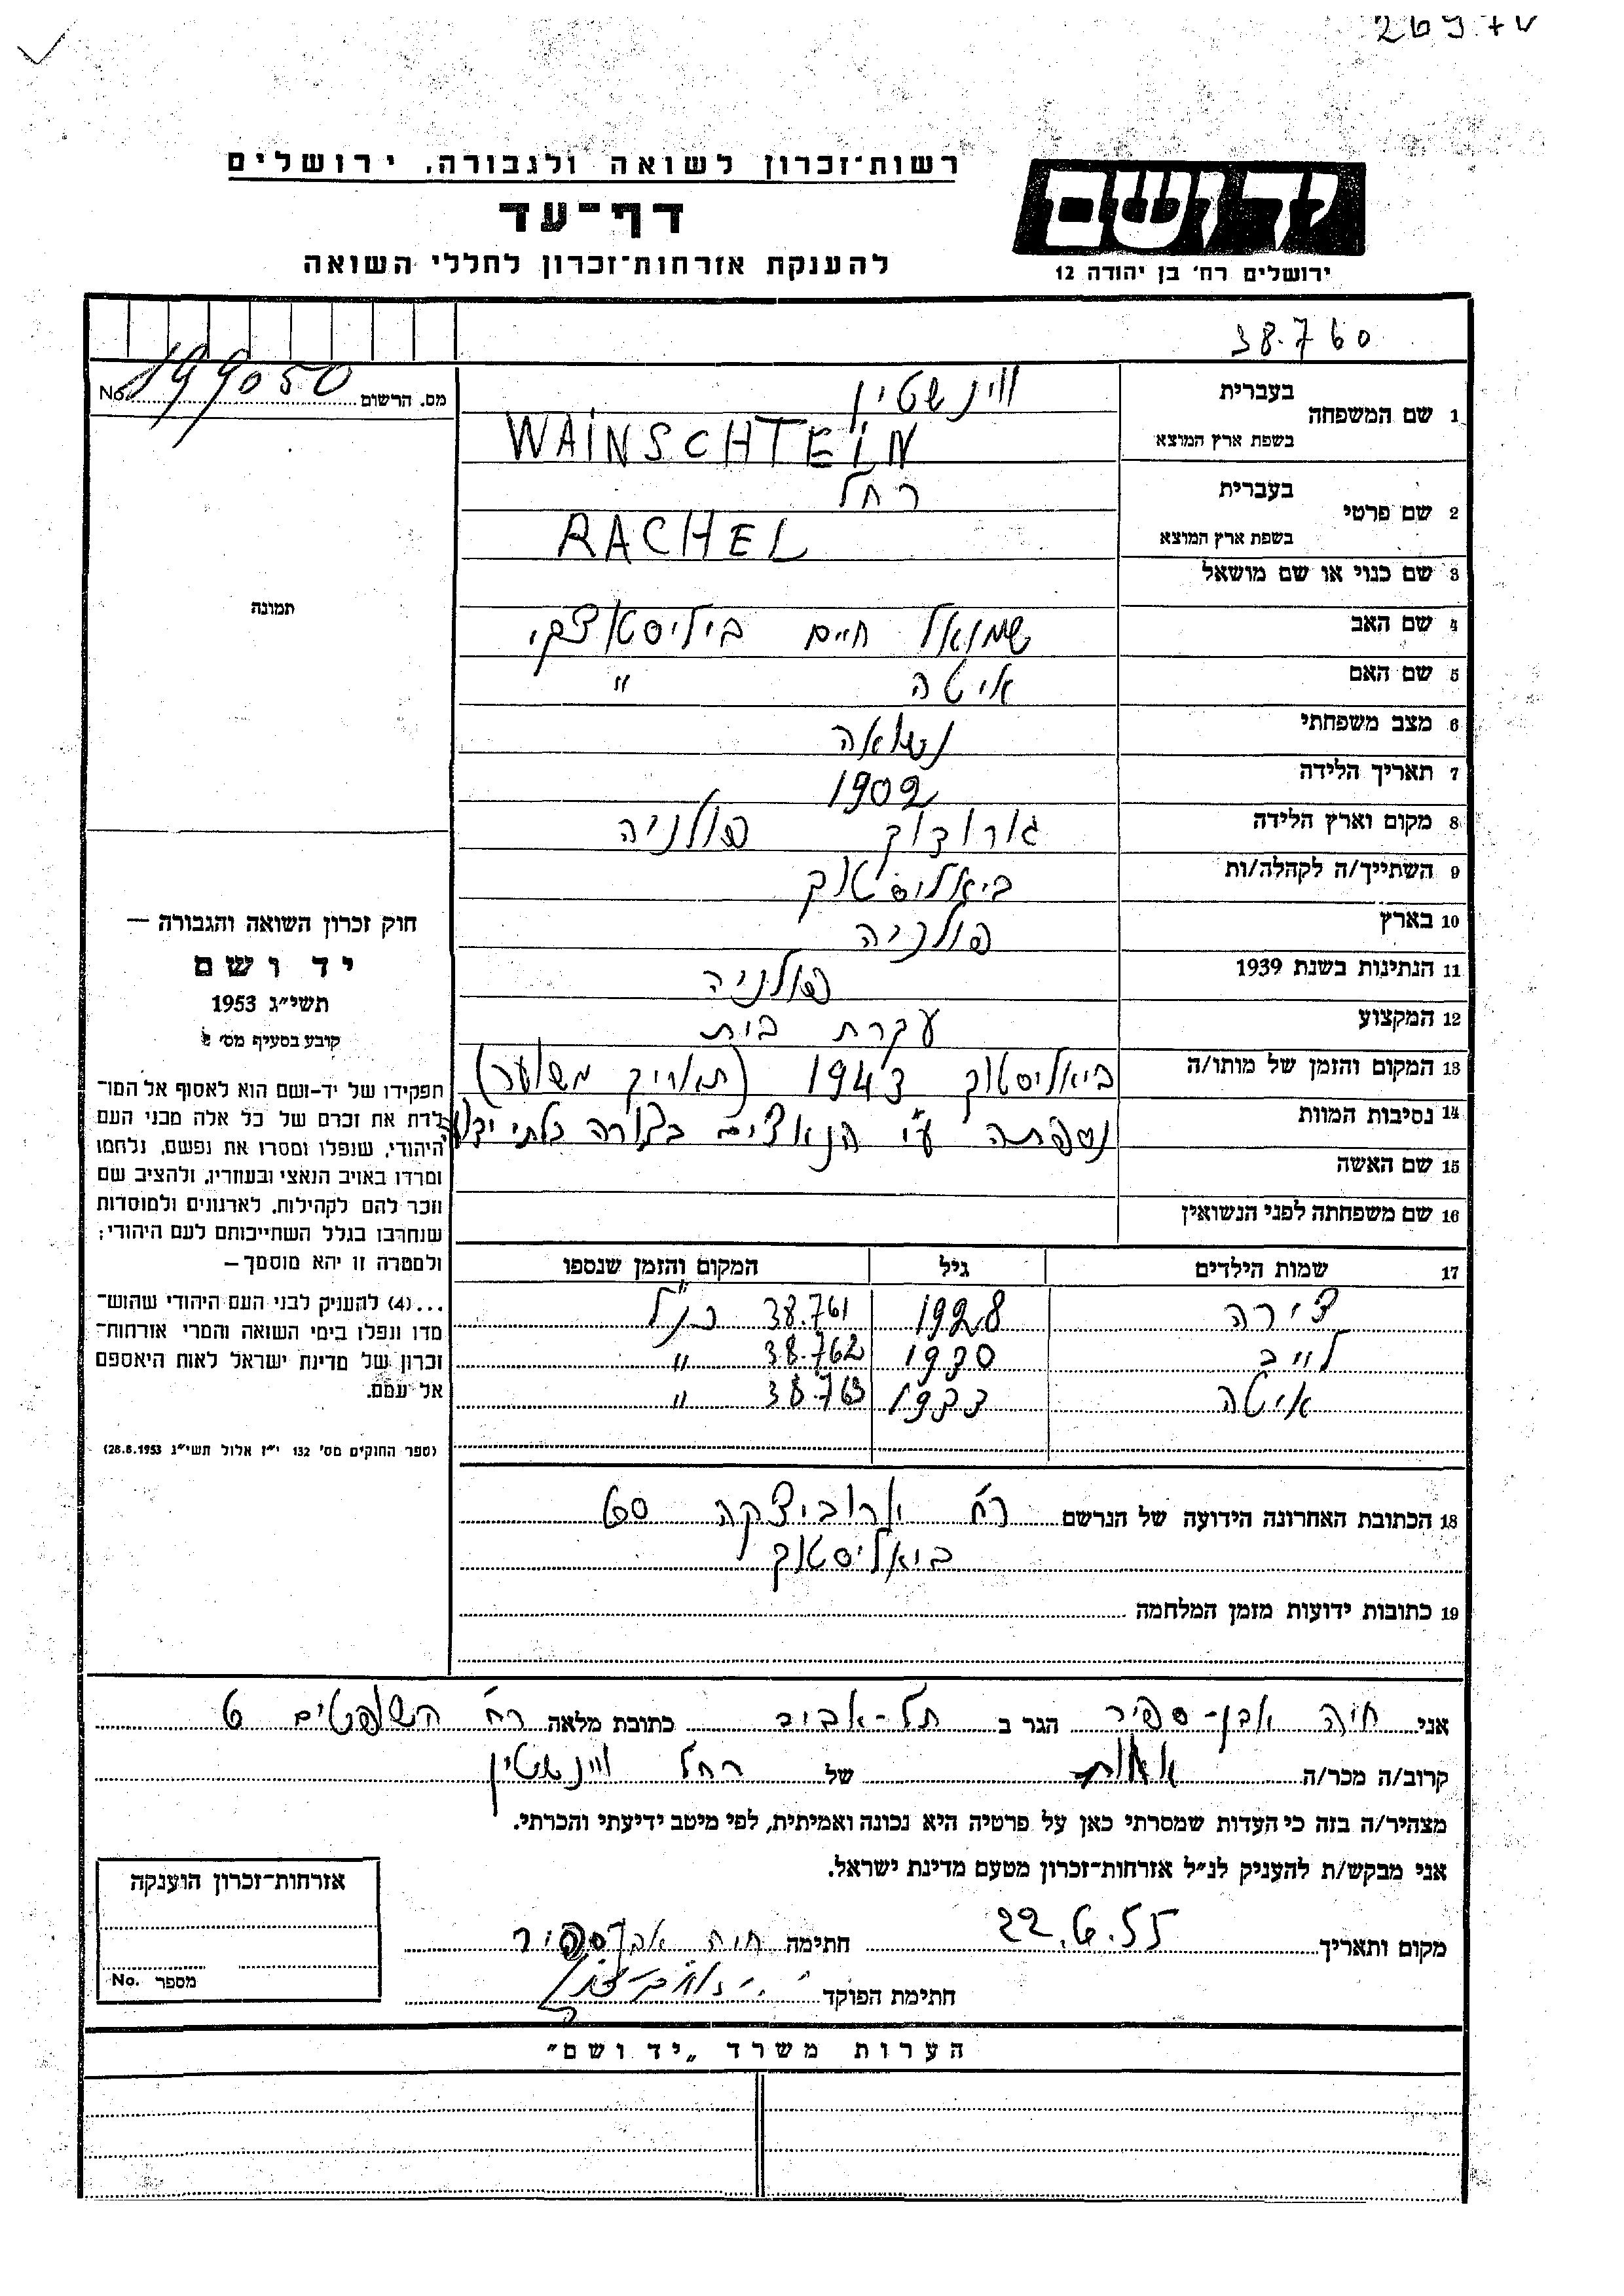 רשות־זכרון לשואה ולגבורה, ירושלים
דף־עד
להענקת אזרחות־זכרון לחללי השואה
יד ושם
ירושלים רח' בן יהודה 12
38.760
מס. הרשום 199050 No.
1 שם המשפחה בעברית ווינשטיין
בשפת ארץ המוצא WAINSCHTEIN
2 שם פרטי בעברית רחל
בשפת ארץ המוצא RACHEL
3 שם כנוי או שם מושאל
4 שם האב שמואל חיים ביליסטוצקי
5 שם האם איטה "
6 מצב משפחתי נשואה
7 תאריך הלידה 1902
8 מקום וארץ הלידה גורודוק פולניה
9 השתייך/ה לקהלה/ות ביאליסטוק
10 בארץ פולניה
11 הנתינות בשנת 1939 פולניה
12 המקצוע עקרת בית
13 המקום והזמן של מותו/ה ביאליסטוק 1943 (תאריך משוער)
14 נסיבות המוות נספתה ע"י הנאצים בצורה בלתי ידועה
15 שם האשה
16 שם משפחתה לפני הנשואין
17 שמות הילדים גיל המקום והזמן שנספו
צירה 1928 38.761 כנ"ל
לייב 1930 38.762 "
איטה 1933 38.763 "
18 הכתובת האחרונה הידועה של הנרשם רח'
ביאליסטוק
19 כתובות ידועות מזמן המלחמה
תמונה
חוק זכרון השואה והגבורה —
יד ושם
תשי"ג 1953
קובע בסעיף מס'
תפקידו של יד־ושם הוא לאסוף אל המו־
לדת את זכרם של כל אלה מבני העם
היהודי, שנפלו ומסרו את נפשם, נלחמו
ומרדו באויב הנאצי ובעוזריו, ולהציב שם
וזכר להם לקהילות, לארגונים ולמוסדות
שנחרבו בגלל השתייכותם לעם היהודי;
ולמטרה זו יהא מוסמך —
...(4) להעניק לבני העם היהודי שהוש־
מדו ונפלו בימי השואה והמרי אזרחות־
זכרון של מדינת ישראל לאות היאספם
אל עמם.
(ספר החוקים מס' 132 י"ז אלול תשי"ג 28.8.1953)
אני חיה אבן-ספיר הגר ב תל-אביב כתובת מלאה רח' השופטים 6
קרוב/ה מכר/ה אחות של רחל ווינשטיין
מצהיר/ה בזה כי העדות שמסרתי כאן על פרטיה היא נכונה ואמיתית, לפי מיטב ידיעתי והכרתי.
אני מבקש/ת להעניק לנ"ל אזרחות־זכרון מטעם מדינת ישראל.
מקום ותאריך 22.6.55 חתימה חיה אבן ספיר
חתימת הפוקד
אזרחות־זכרון הוענקה
מספר No.
הערות משרד „יד ושם"